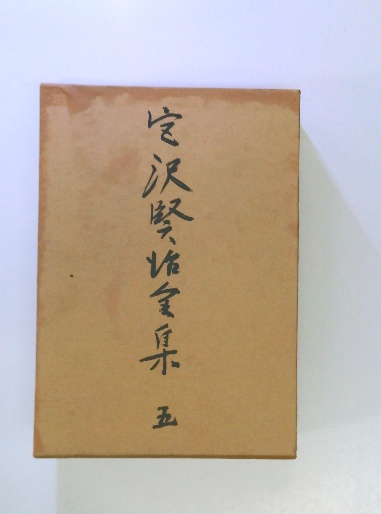 宮沢賢治全集 五